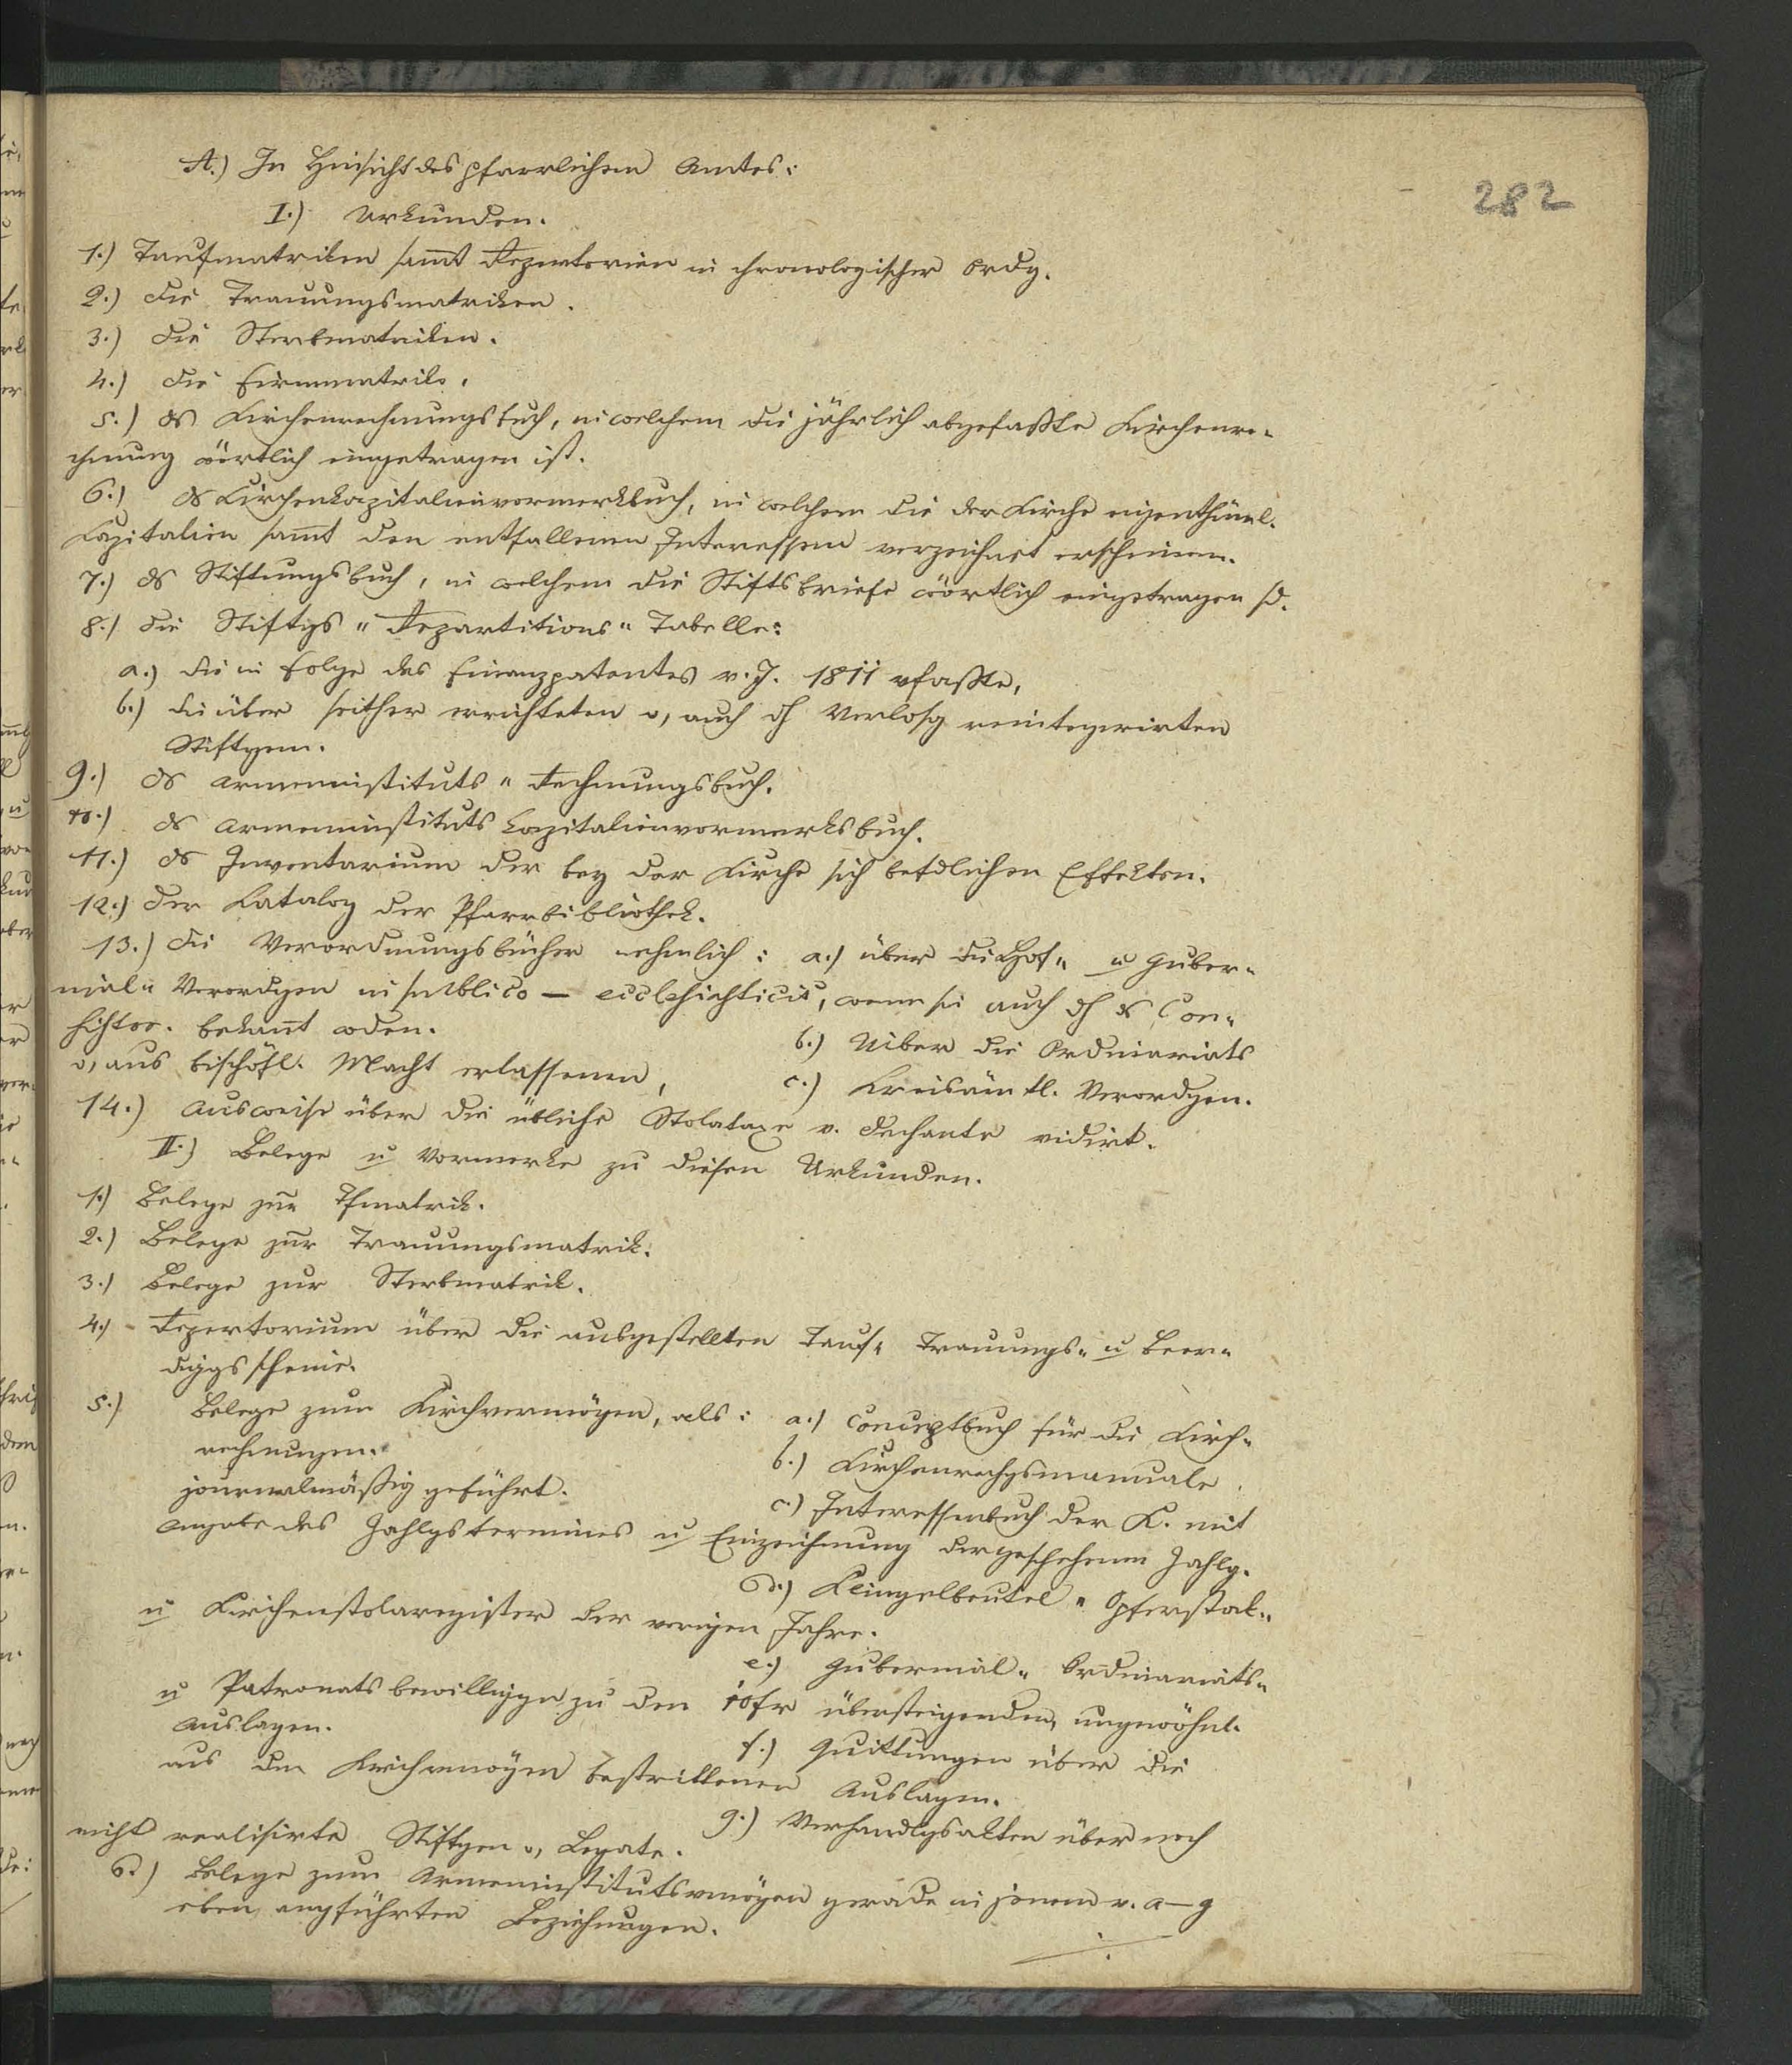 282
A.) In Hinsicht des pfarrlichen Amtes:
I.) Urkunden.
1.) Taufmatriken sammt Repertorien in chronologischer Ordg.
2.) Die Trauungsmatriken.
3.) Die Sterbmatriken.
4.) Die Firmmatrik.
5.) Ds Kirchenrechnungsbuch, in welchem die jährlich abgefaßte Kirchenre-
chnung wörtlich eingetragen ist.
6.) Ds Kirchenkapitalienvormerkbuch, in welchem die der Kirche eigenthüml.
Kapitalien sammt den entfallenen Interessen verzeichnet erscheinen.
7.) Ds Stiftungsbuch, in welchem die Stiftsbriefe wörtlich eingetragen sd.
8.) Die Stiftgs "Repartitions" Tabelle:
a.) die in Folge des Finanzpatentes v. J. 1811 vfaßte,
b.) die über seither errichteten o, auch dh Verlosg reintegrirten
Stiftgen.
9.) Ds Armeninstituts "Rechnungsbuch.
10.) Ds Armeninstituts Kapitalienvormerksbuch.
11.) Ds Inventarium der bey der Kirche sich befdlichen Effekten.
12.) Der Katalog der Pfarrbibliothek.
13.) Die Verordnungsbücher nehmlich: a.) über die Hof- u Guber-
nial- Verordgen in publico — ecclesiasticis, wenn sie auch dh ds Con-
sistor. bekannt wden.
b.) Uiber die Ordinariats
o, aus bischöfl. Macht erlassenen,
c.) Kreisämtl. Verordgen.
14.) Ausweise über die übliche Stolataxe v. Dechante vidirt.
II.) Belege u Vormerke zu diesen Urkunden.
1.) Belege zur Tfmatrik.
2.) Belege zur Trauungsmatrik.
3.) Belege zur Sterbmatrik.
4.) Repertorium über die ausgestellten Tauf- Trauungs- u Beer-
diggsscheine.
5.) Belege zum Kirchvermögen, als: a.) Conceptbuch für die Kirch-
rechnungen.
b.) Kirchenrechgsmanuale
journalmäßig geführt.
c.) Interessenbuch der K. mit
Angabe des Zahlgstermines u Einzeichnung der geschehenen Zahlg.
d.) Klingelbeutel " Opferstok-
u Kirchenstolaregister der vorigen Jahre.
e.) Gubernial- Ordinariats-
u Patronatsbewilliggn zu den 10fr übersteigenden, ungewöhnl.
Auslagen.
f.) Quittungen über die
aus dem Kirchvmögen bestrittenen Auslagen.
g.) Verhandlgsakten über noch
nicht realisirte Stiftgen o, Legate.
6.) Belege zum Armeninstitutsvmögen gerade in jenem v. a—g
eben angführten Beziehungen.